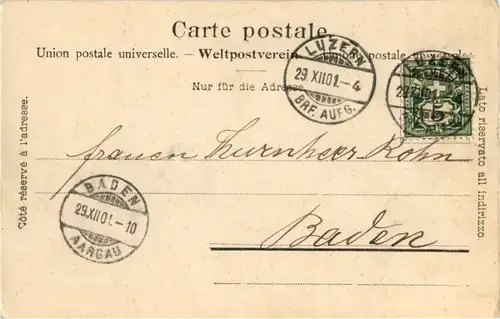 Carte postale.
Union postale universelle. - Weltpostverein postale
Nur für die Adresse
LUZERN
29.XII.01.-4
BRF. AUFG.
LUZERN
Côté réservé à l'adresse.
Lato riservato all indirizzo.
BADEN
29.XII.01.-10
AARGAU
Baden